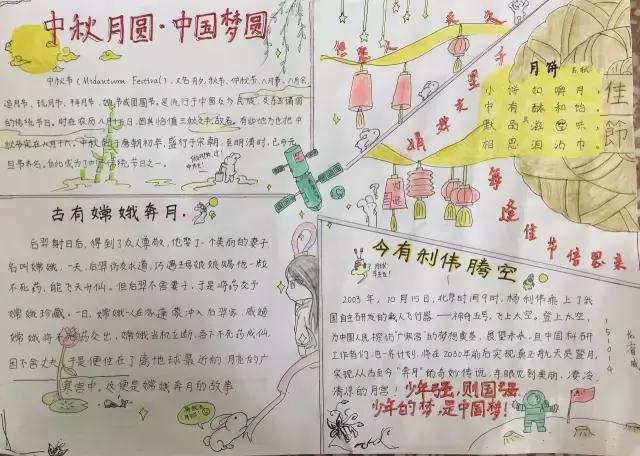 中秋月圆·中国梦圆
中秋节(Midautumn Festival),又名月夕,秋节、仲秋节、八月节、八月会
追月节、玩月节、拜月节、
节或团圆节,是流行于中国众多民族
的传统节日。时在农历八月十五日,因其恰值三秋之半,故名。有些地方也把中
秋节定在八月十六。中秋节始于唐朝初年,盛行于宋朝,至明清时,已与元
旦齐名,
为中国传统节日之一。
但愿人长久
千里共婵娟
每逢佳节倍思亲
月饼
苏轼
小饼如嚼月,
中有酥和饴
默品其滋味,
相思泪沾巾
佳节
古有嫦娥奔月.
后羿射日后,得到了众人尊敬,他娶了一个美丽的妻子
名叫嫦娥,一天,后羿访友求道,巧遇王母娘娘,娘娘赐他一粒
不死药,能飞天升仙,但后羿不舍妻子,于是将药交于
嫦娥珍藏,一日,
冲入后羿家,威逼
嫦娥将不死药交出,嫦娥当机立断,吞下不死药成仙,
因不舍丈夫,于是便住在了离地球最近的月亮的广
寒宫中。这便是嫦娥奔月的故事
今有利伟腾空
2003年,10月15日,北京时间9时,杨利伟乘上了我
国自主研发的载人飞行器——神舟五号,飞上太空。登上太空,
为中国人民探访“广寒宫”的梦想奠基,展望未来,且中国科研
工作者们,已
计划,将在2030年前后实现真正的航天登月,
实现从古至今“奔月”的奇妙传说,亲眼见到美丽、凄冷、
清凉的月宫!
少年强,则国强
少年的梦,是中国梦!
15104